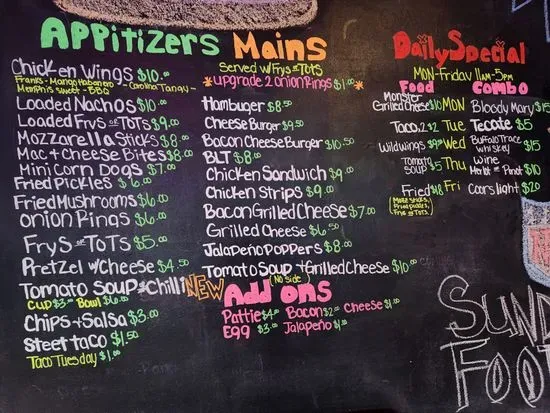 Appitizers
Chicken Wings $10.00
Franks - Mango Habenero - Carolina Tangy -
Memphis Sweet - BBQ
Loaded Nachos $10.00
Loaded Frys or Tots $9.00
Mozzarella Sticks $8.00
Mac + Cheese Bites $8.00
Mini Corn Dogs $7.00
Fried Pickles $6.00
Fried Mushrooms $6.00
Onion Rings $6.00
Frys or Tots $5.00
Pretzel w/Cheese $4.50
Tomato Soup or Chili NEW
Cup $3.00 Bowl $6.00
Chips + Salsa $3.00
Steet taco $1.50
Taco Tuesday $1.00
Mains
Served w/ Frys or Tots
*upgrade 2 onion Rings $1.00*
Hambuger $8.50
Cheese Burger $9.50
Bacon Cheese Burger $10.50
BLT $8.00
Chicken Sandwich $9.00
Chicken Strips $9.00
Bacon Grilled Cheese $7.00
Grilled Cheese $6.50
Jalapeño Poppers $8.00
Tomato Soup + Grilled Cheese $10.00
(No side)
Add ons
Pattie $4.00 Bacon $2.00 Cheese $1.00
Egg $3.00 Jalapeño $1.00
Daily Special
MON-Friday 11am-5pm
Food Combo
Monster Grilled Cheese $10 MON Bloody Mary $15
Taco 2 $12 Tue Tecate $5
Wild Wings $9 Wed Buffalo Trace Whiskey $15
Tomato Soup $5 Thu Wine Merlot or Pinot $10
Fried $18 Fri Coors light $20
(Mozz Sticks,
Fried pickles,
Frys or Tots)
SUND
FOOT